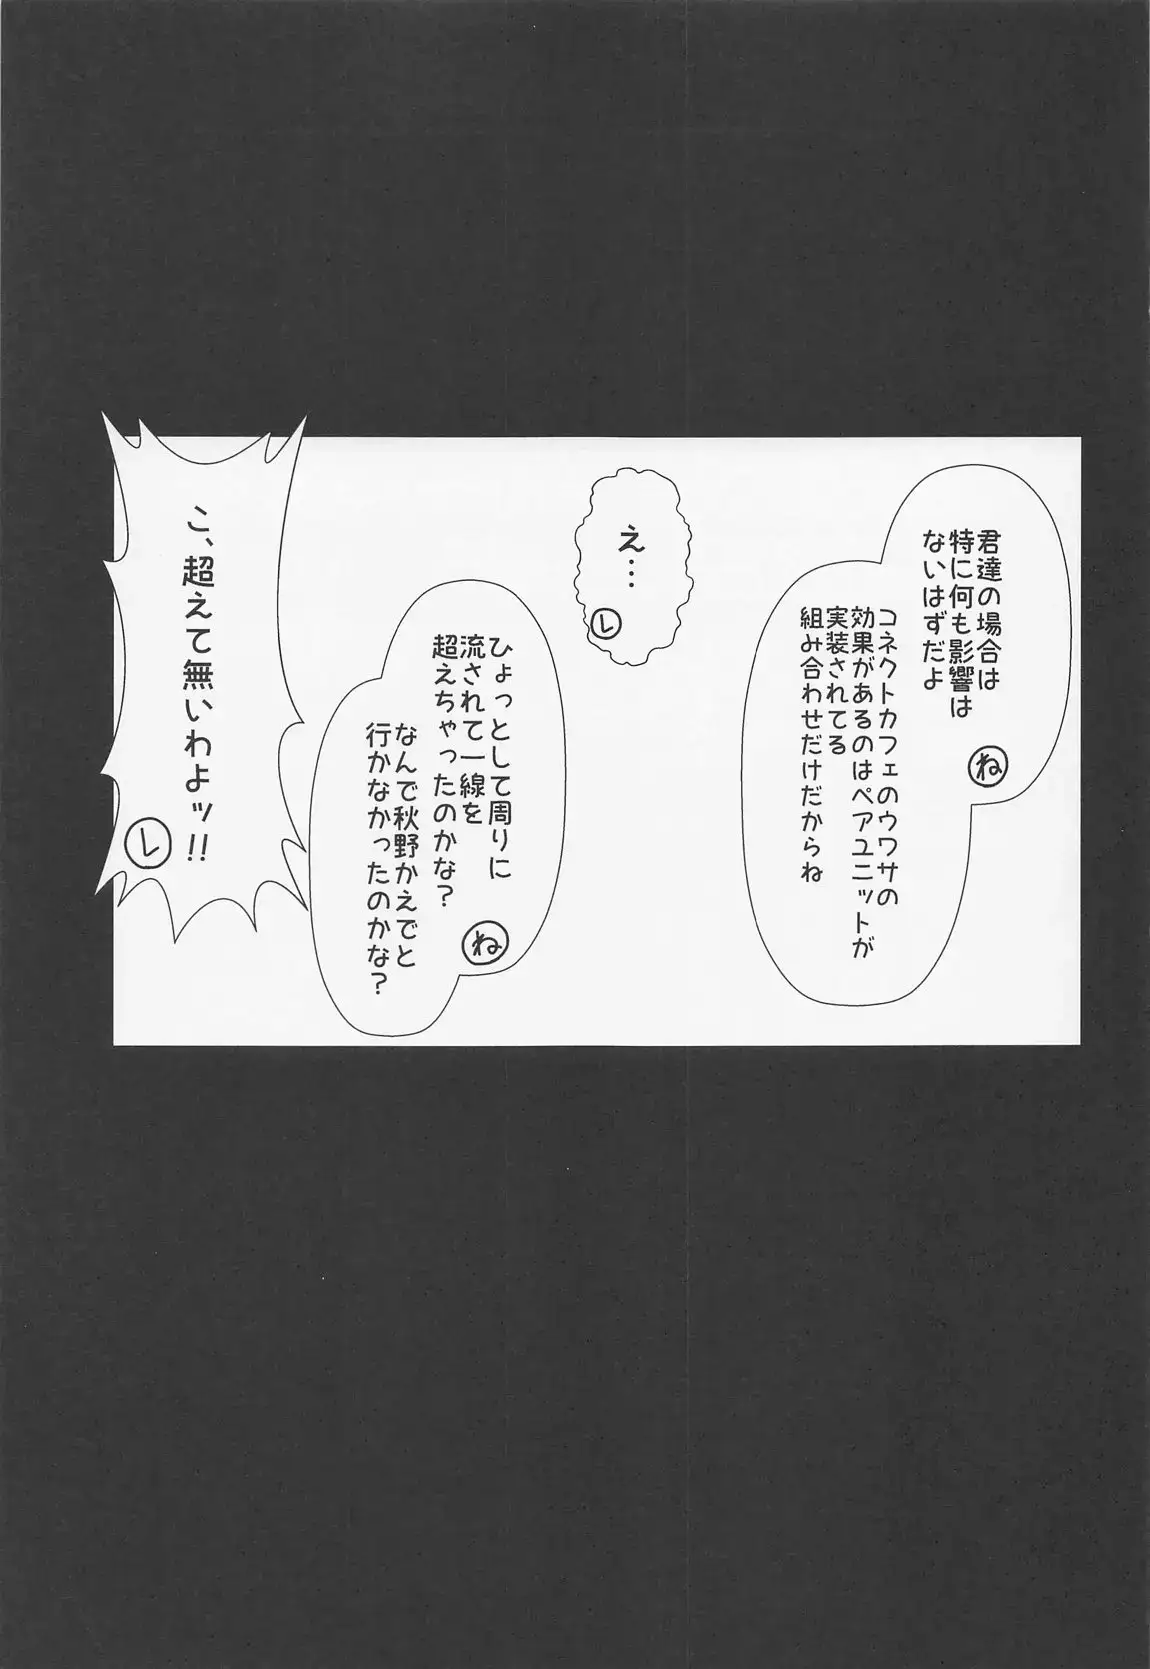 君達の場合は
特に何も影響は
ないはずだよ
ね
コネクトカフェのウワサの
効果があるのはペアユニットが
実装されてる
組み合わせだけだからね
え…
レ
ひょっとして周りに
流されて一線を
超えちゃったのかな?
ね
なんで秋野かえでと
行かなかったのかな?
こ、超えて無いわよッ!!
レ